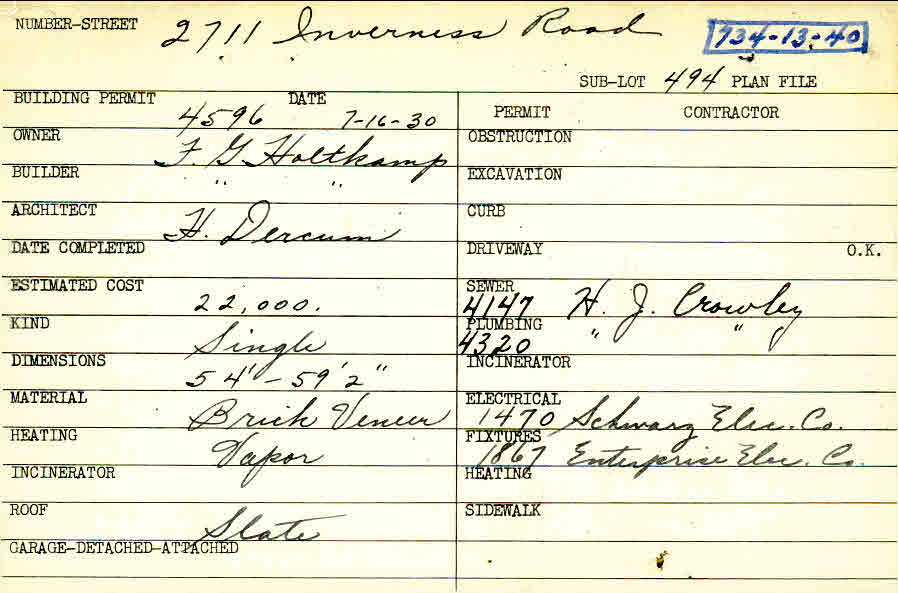 NUMBER-STREET 2711 Inverness Road 734-13-40
SUB-LOT 494 PLAN FILE
BUILDING PERMIT 4596 DATE 7-16-30
OWNER F. G. Holtkamp
BUILDER " "
ARCHITECT H. Dercum
DATE COMPLETED
ESTIMATED COST 22,000.
KIND Single
DIMENSIONS 54' - 59'2"
MATERIAL Brick Veneer
HEATING Vapor
INCINERATOR
ROOF Slate
GARAGE-DETACHED-ATTACHED
PERMIT CONTRACTOR
OBSTRUCTION
EXCAVATION
CURB
DRIVEWAY O.K.
SEWER 4147 H. J. Crowley
PLUMBING 4320 " "
INCINERATOR
ELECTRICAL 1470 Schwarz Elec. Co.
FIXTURES 1867 Enterprise Elec. Co.
HEATING
SIDEWALK